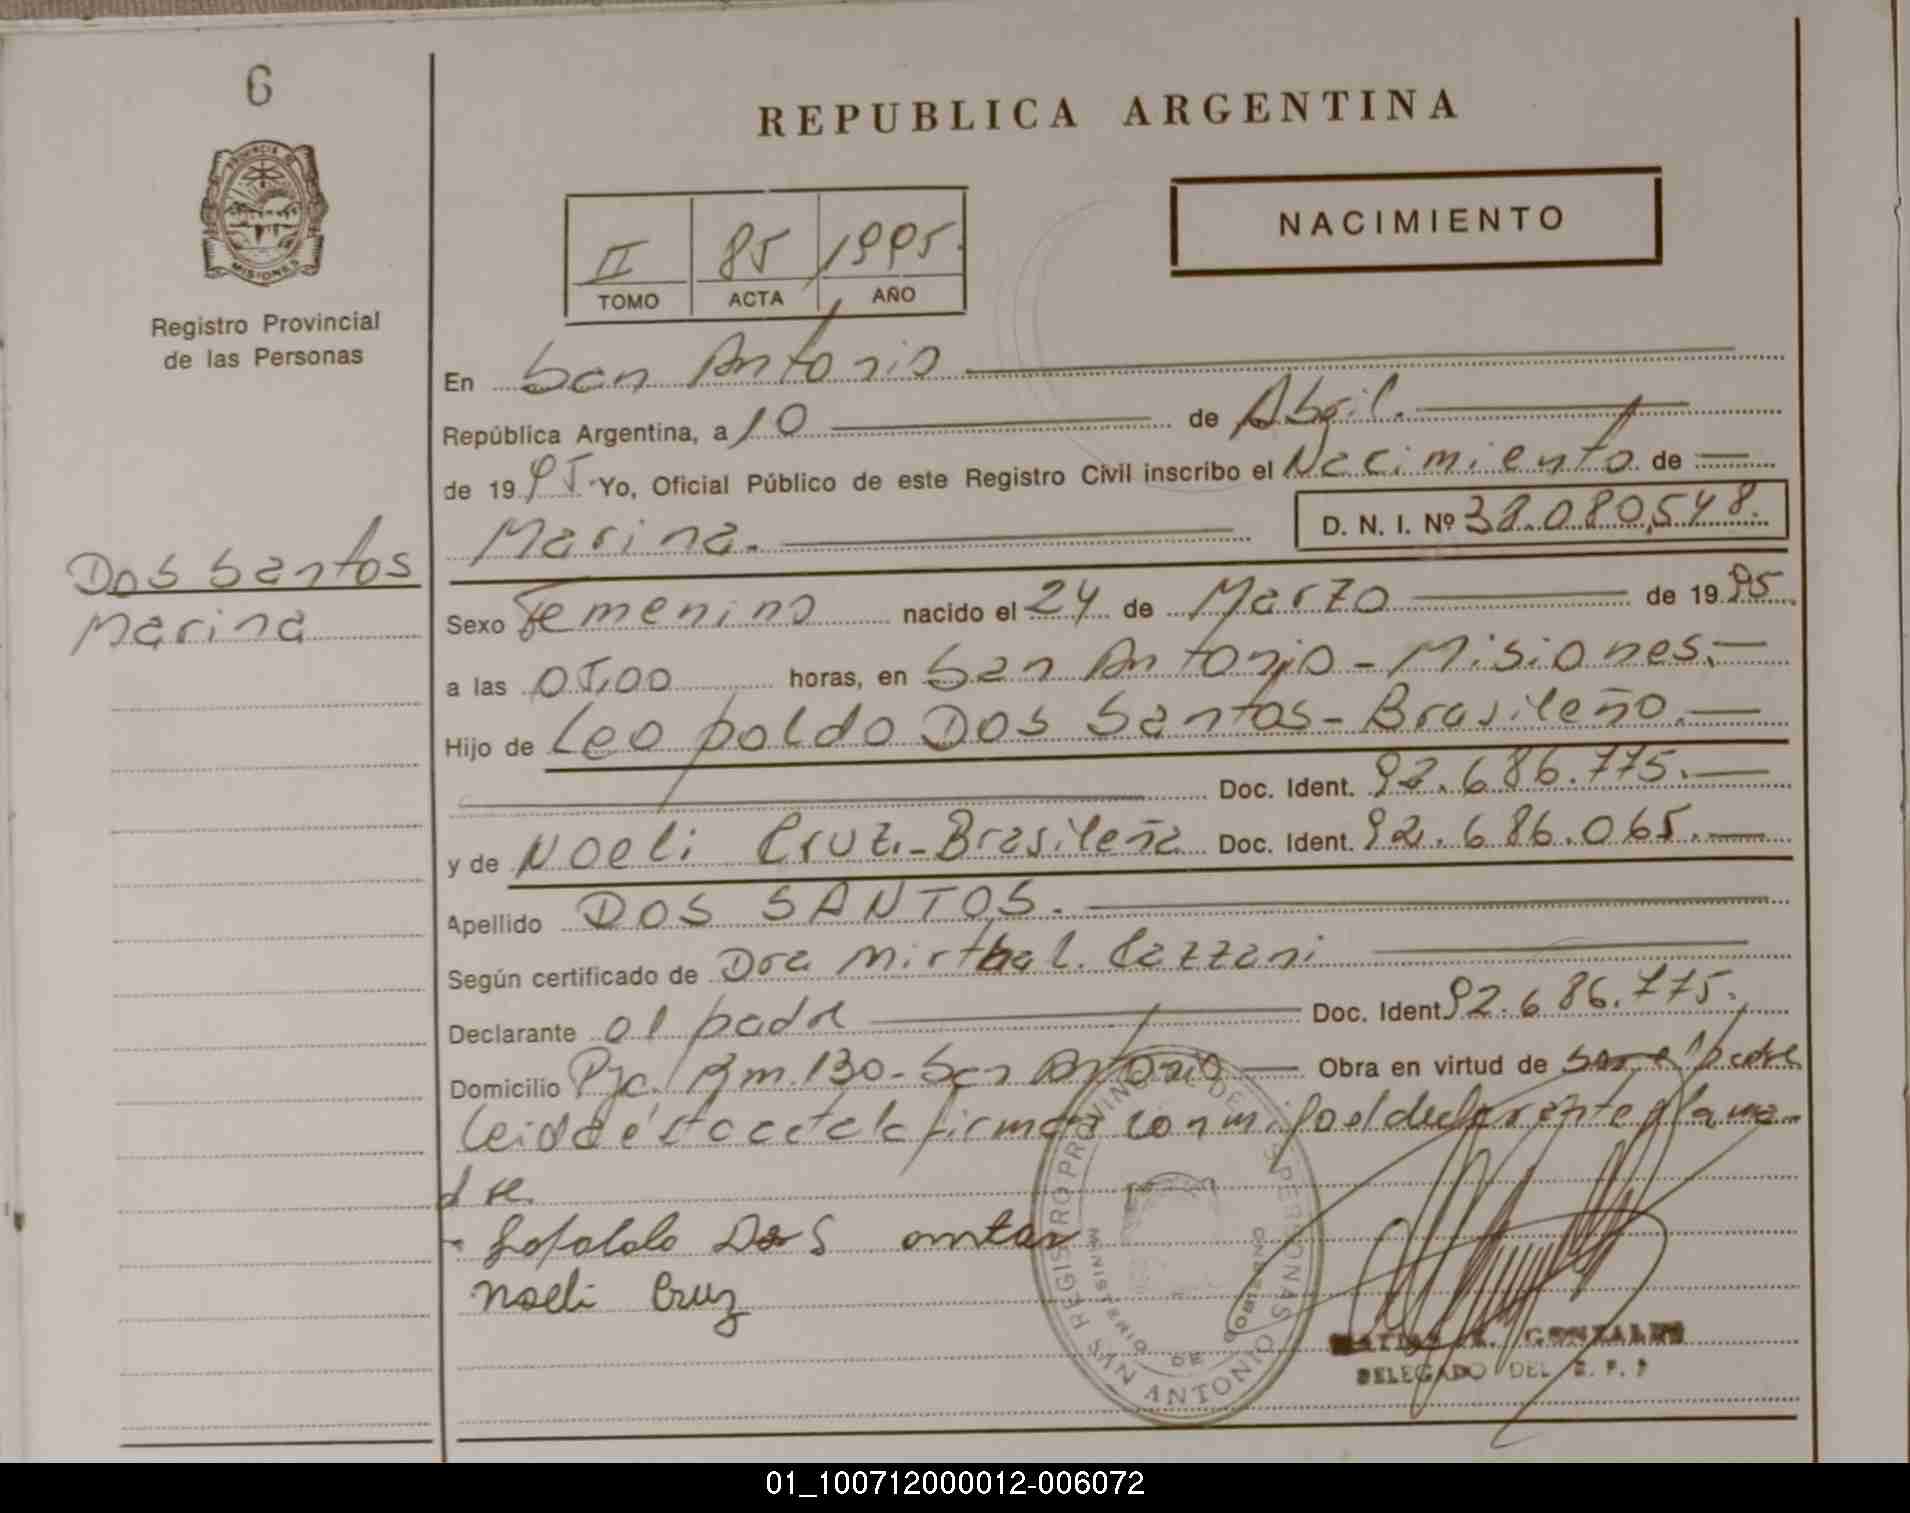 6
PROVINCIA DE
MISIONES
Registro Provincial
de las Personas
Dos Santos
Marina
REPUBLICA ARGENTINA
NACIMIENTO
II 85 1995.
TOMO ACTA AÑO
En San Antonio
República Argentina, a 10 de Abril.
de 1995 Yo, Oficial Público de este Registro Civil inscribo el Nacimiento de
Marina. D. N. I. Nº 38.080.548.
Sexo Femenino nacido el 24 de Marzo de 1995
a las 05,00 horas, en San Antonio - Misiones.-
Hijo de Leopoldo Dos Santos - Brasileño.-
Doc. Ident. 92.686.775.-
y de Noeli Cruz.- Brasileña Doc. Ident. 92.686.065.-
Apellido DOS SANTOS.
Según certificado de Dra Mirtha L. Cazzani
Declarante el padre Doc. Ident. 92.686.775.
Domicilio Pje. Km. 130 - San Antonio Obra en virtud de ser el padre
Leida ésta acta la firma conmigo el declarante y la ma-
dre.
Dos
Noeli Cruz
REGISTRO PROVINCIAL DE LAS PERSONAS
MINISTERIO DE GOBIERNO
SAN ANTONIO
GONZALES
DELEGADO DEL
01_100712000012-006072